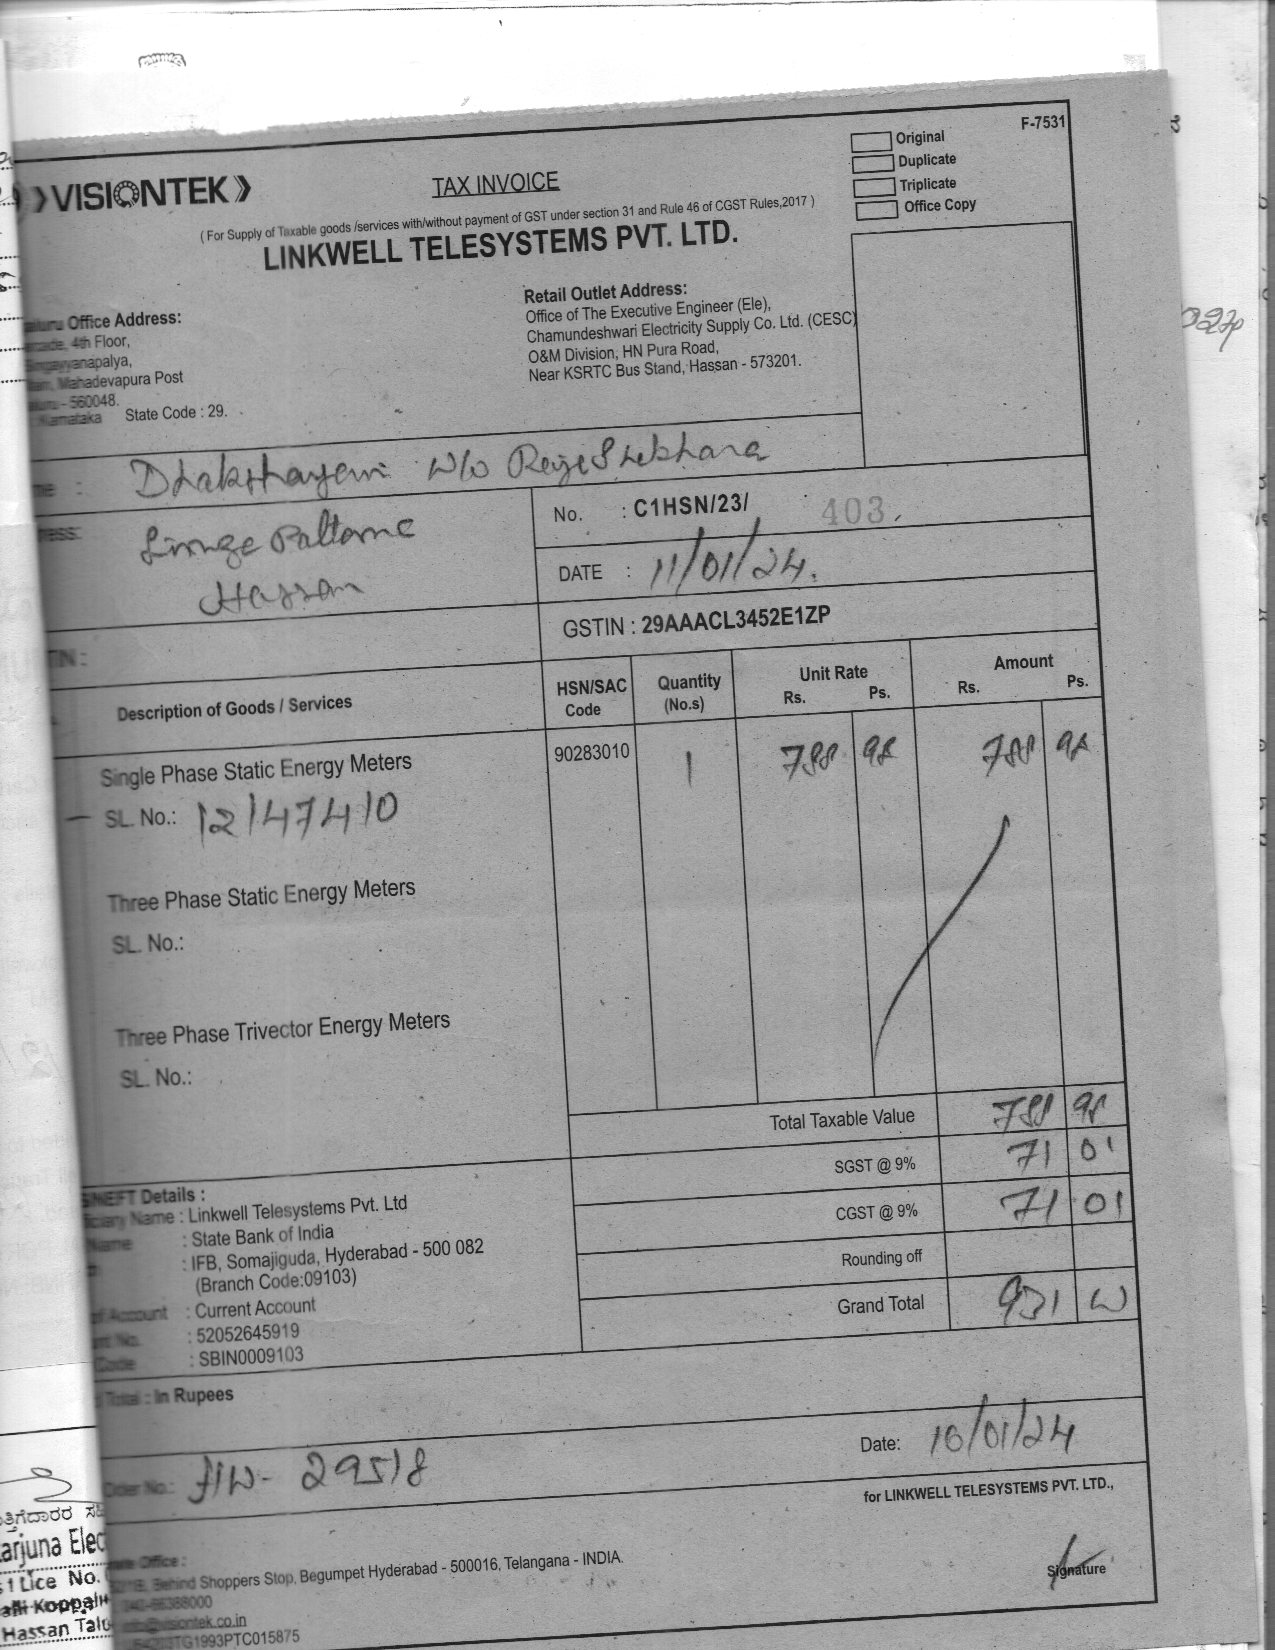 F-7531
Original
Duplicate
Triplicate
Office Copy
VISIONTEK
TAX INVOICE
( For Supply of Taxable goods /services with/without payment of GST under section 31 and Rule 46 of CGST Rules,2017 )
LINKWELL TELESYSTEMS PVT. LTD.
Office Address:
4th Floor,
Mahadevapura Post
- 560048.
Karnataka State Code : 29.
Retail Outlet Address:
Office of The Executive Engineer (Ele),
Chamundeshwari Electricity Supply Co. Ltd. (CESC)
O&M Division, HN Pura Road,
Near KSRTC Bus Stand, Hassan - 573201.
Dhakshayeni W/o
Hassan
No. : C1HSN/23/ 403
DATE : 11/01/24.
GSTIN : 29AAACL3452E1ZP
Description of Goods / Services
HSN/SAC Code
Quantity (No.s)
Unit Rate Rs. Ps.
Amount Rs. Ps.
Single Phase Static Energy Meters 90283010 1 788 98 788 98
SL. No.: 12147410
Three Phase Static Energy Meters
SL. No.:
Three Phase Trivector Energy Meters
SL. No.:
Total Taxable Value 788 98
SGST @ 9% 71 01
CGST @ 9% 71 01
Rounding off
Grand Total 931
Details :
Name : Linkwell Telesystems Pvt. Ltd
Name : State Bank of India
: IFB, Somajiguda, Hyderabad - 500 082
(Branch Code:09103)
of Account : Current Account
No. : 52052645919
Code : SBIN0009103
Total : In Rupees
Order No.: 29518
Date: 10/01/24
for LINKWELL TELESYSTEMS PVT. LTD.,
Signature
Office :
Behind Shoppers Stop, Begumpet Hyderabad - 500016, Telangana - INDIA.
Lice No.
Hassan